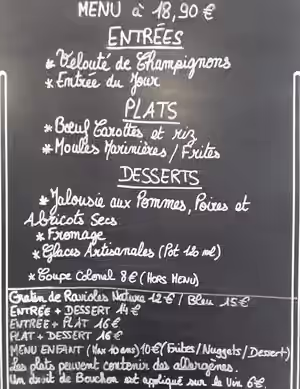 MENU à 18,90 €
ENTRÉES
* Velouté de Champignons
* Entrée du Jour
PLATS
* Bœuf Carottes et riz
* Moules Marinières / Frites
DESSERTS
* Jalousie aux Pommes, Poires et
Abricots Secs
* Fromage
* Glaces Artisanales (Pot 120 ml)
* Coupe Colonel 8€ (HORS MENU)
Gratin de Ravioles Nature 12€ / Bleu 15€
ENTRÉE + DESSERT 14€
ENTRÉE + PLAT 16€
PLAT + DESSERT 16€
MENU ENFANT (Max 10 ans) 10€ (Frites/Nuggets/Dessert)
Les plats peuvent contenir des allergènes.
Un droit de Bouchon est appliqué sur le Vin 6€.